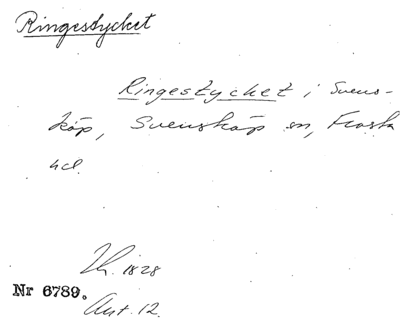 Ringestycket
Ringestycket i Svens-
köp, Svensköp sn, Frosta
hd.
Lh. 1828
Nr 6789.
Ant. 12.